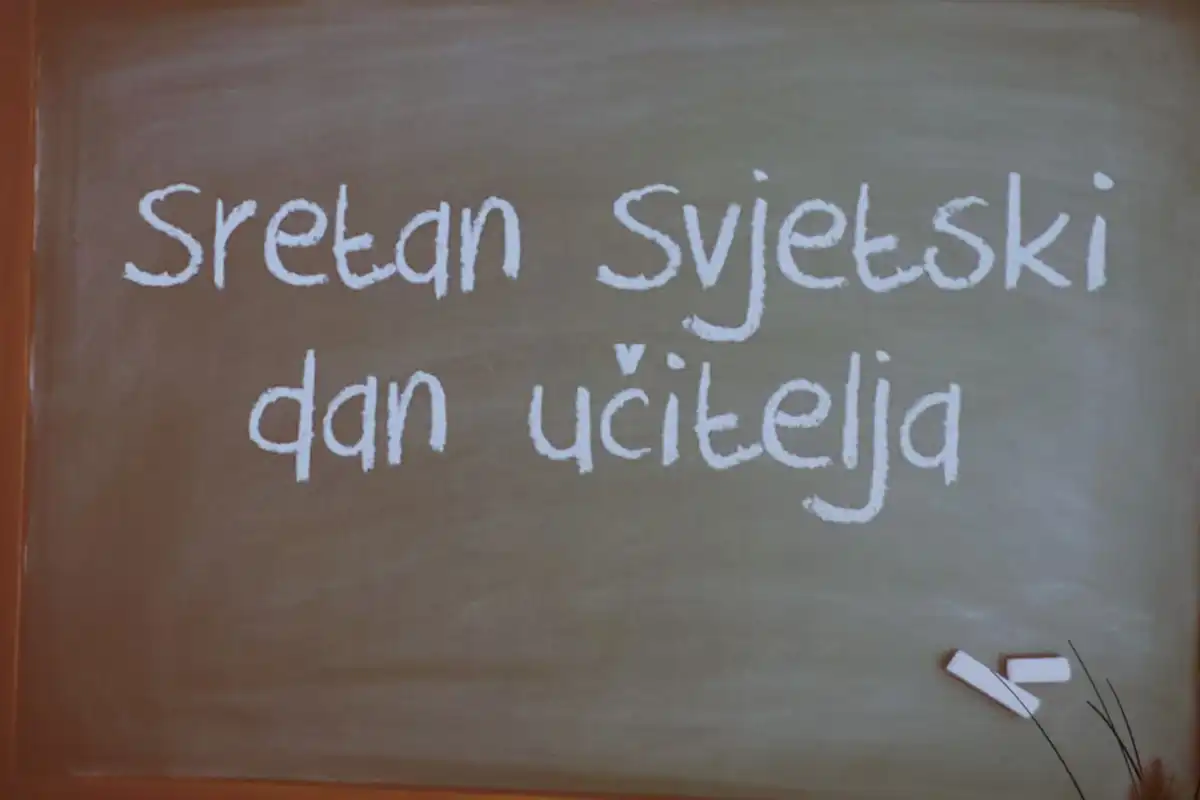 Sretan Svjetski
dan učitelja